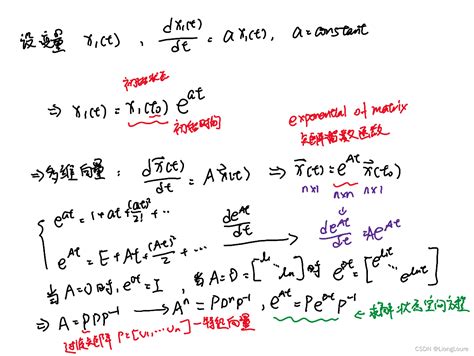 设变量 x₁(t) , dx₁(t)/dt = ax₁(t), a=constant
初始状态
⇒ x₁(t) = x₁(t₀) e^{at}
初始时间
exponential of matrix
矩阵指数函数
⇒多维向量: dx⃗(t)/dt = Ax⃗(t) ⇒ x⃗(t)=e^{At} x⃗(t₀)
n×1 n×n n×1
e^{at} = 1+at+(at)²/2! + ⋯
de^{At}/dt
de^{At}/dt=Ae^{At}
e^{At} = E+At+(At)²/2 + ⋯
当A=0时, e^{0t}=I , 当A=D=[λ₁ ⋱ λₙ]时 e^{Dt}=[e^{λ₁t} ⋱ e^{λₙt}]
⇒ A = PDP⁻¹ → Aⁿ = PDⁿP⁻¹ , e^{At} = Pe^{Dt}P⁻¹ ⇒求解状态空间方程
过渡矩阵 P=[v₁, ⋯ vₙ]—特征向量
CSDN @LiongLoure